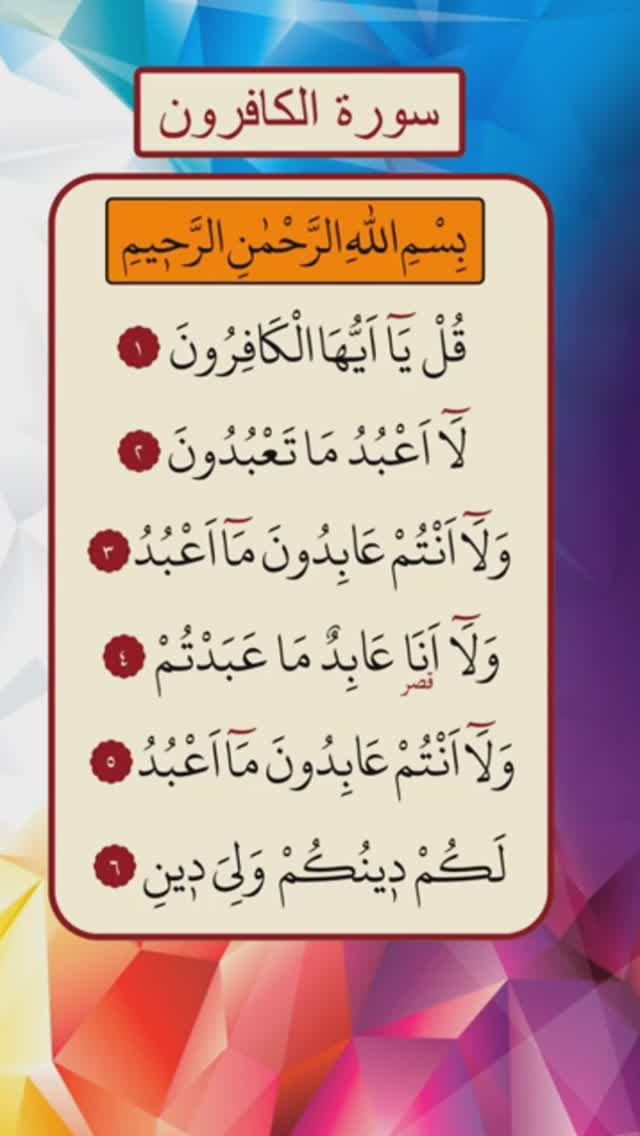 سورة الكافرون
بِسْمِ اللّٰهِ الرَّحْمٰنِ الرَّحٖيمِ
قُلْ يَٓا اَيُّهَا الْكَافِرُونَ ١
لَٓا اَعْبُدُ مَا تَعْبُدُونَ ٢
وَلَٓا اَنْتُمْ عَابِدُونَ مَٓا اَعْبُدُ ٣
وَلَٓا اَنَا عَابِدٌ مَا عَبَدْتُمْ ٤
قصر
وَلَٓا اَنْتُمْ عَابِدُونَ مَٓا اَعْبُدُ ٥
لَكُمْ دٖينُكُمْ وَلِيَ دٖينِ ٦